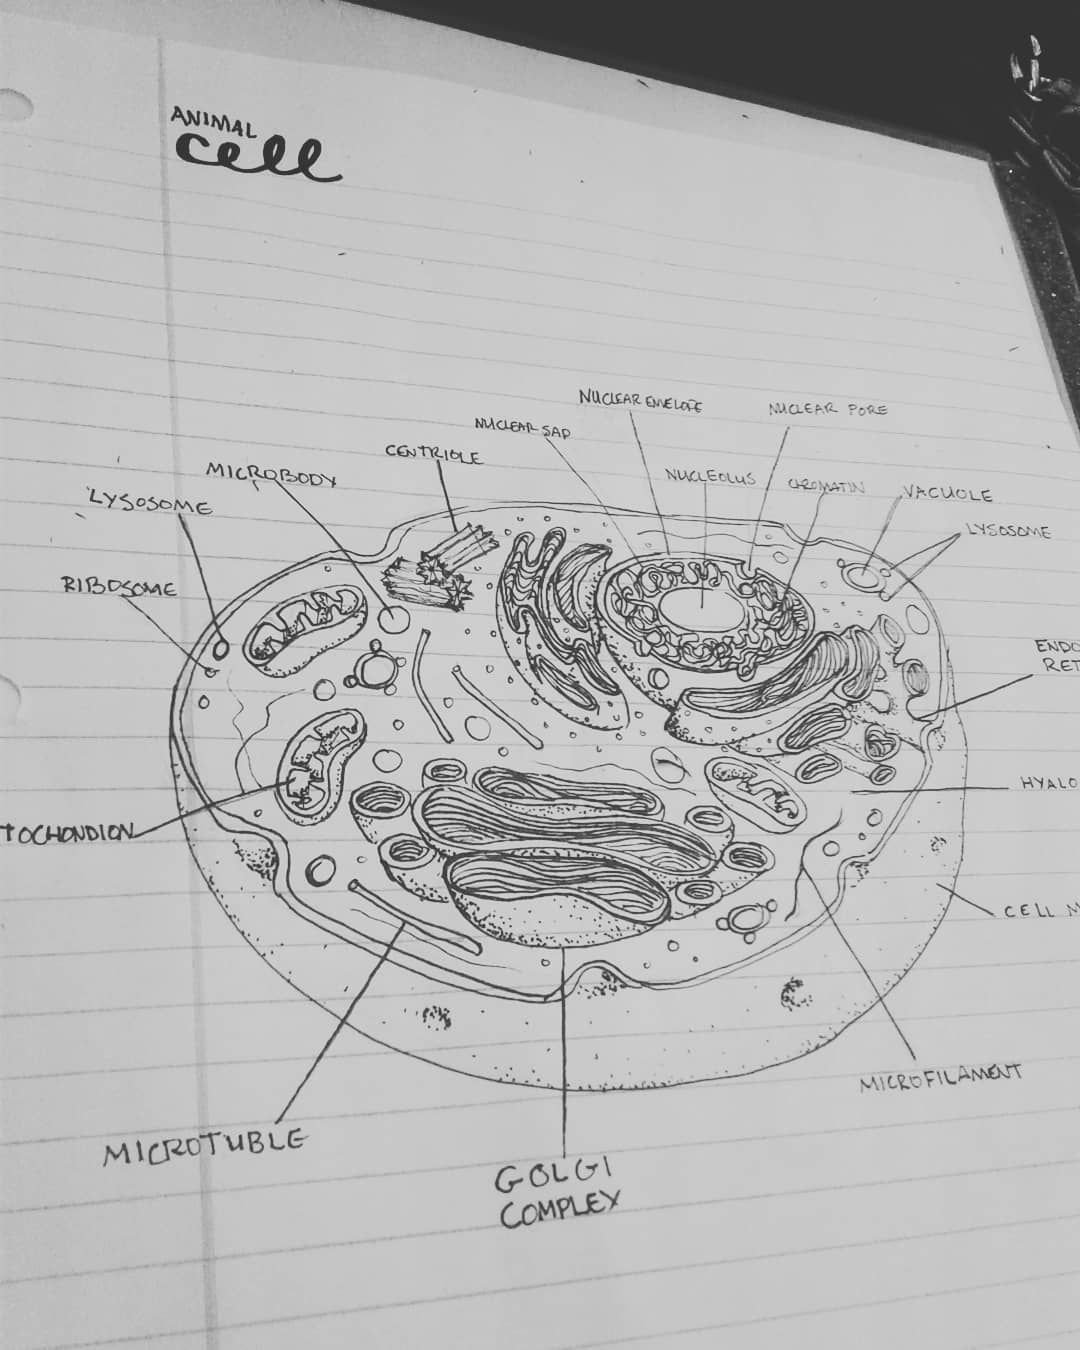 ANIMAL
cell
NUCLEAR ENVELOPE
NUCLEAR PORE
NUCLEAR SAP
CENTRIOLE
MICROBODY
NUCLEOLUS
CHROMATIN
VACUOLE
LYSOSOME
LYSOSOME
RIBOSOME
ENDO
RET
HYALO
TOCHONDION
CELL M
MICROFILAMENT
MICROTUBLE
GOLGI
COMPLEX